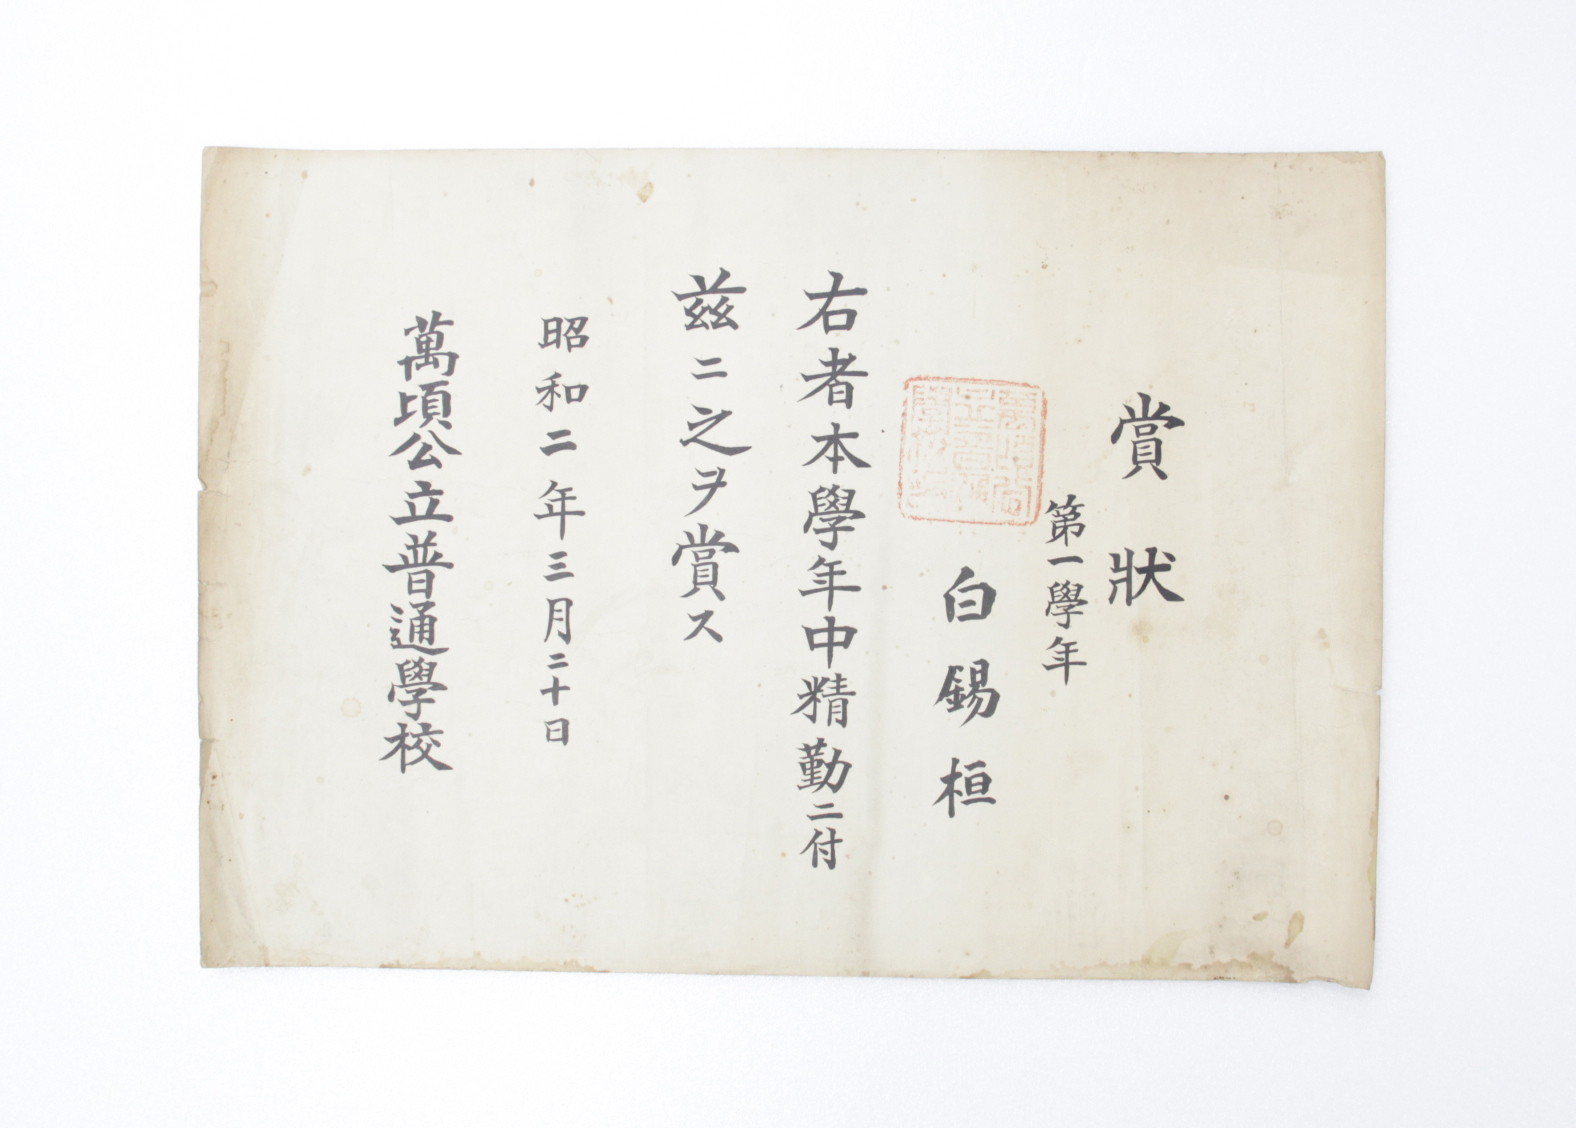 賞狀
第一學年
白錫桓
右者本學年中精勤ニ付
茲ニ之ヲ賞ス
昭和二年三月二十日
萬頃公立普通學校